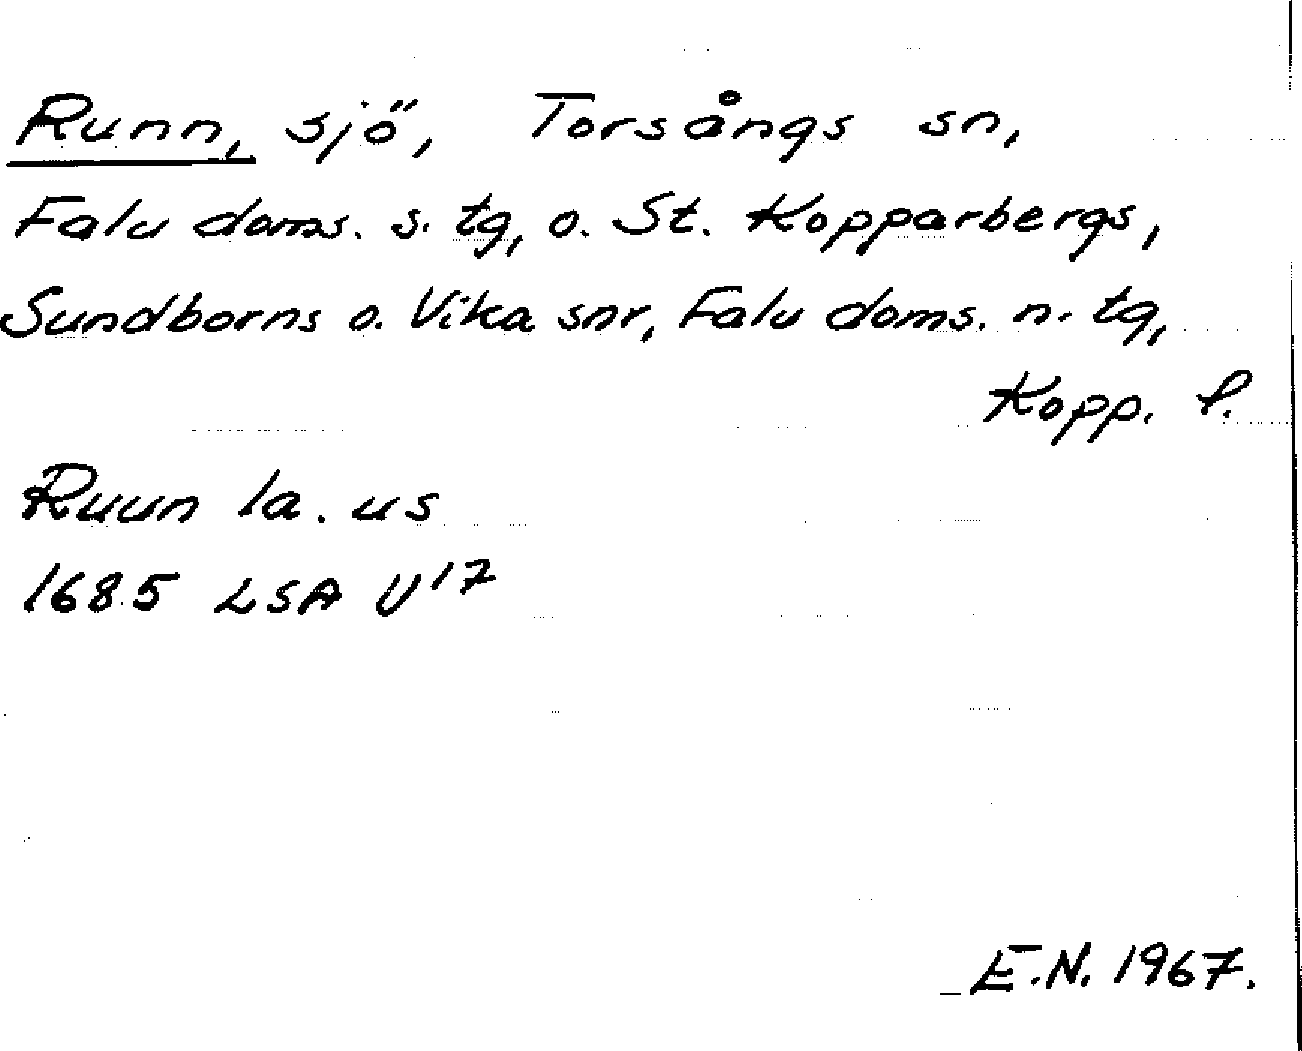 Runn, sjö, Torsångs sn,
Falu doms. s. tg, o. St. Kopparbergs,
Sundborns o. Vika snr, Falu doms. n. tg,
Kopp. l.
Ruun la. us
1685 LSA U17
E.N. 1967.